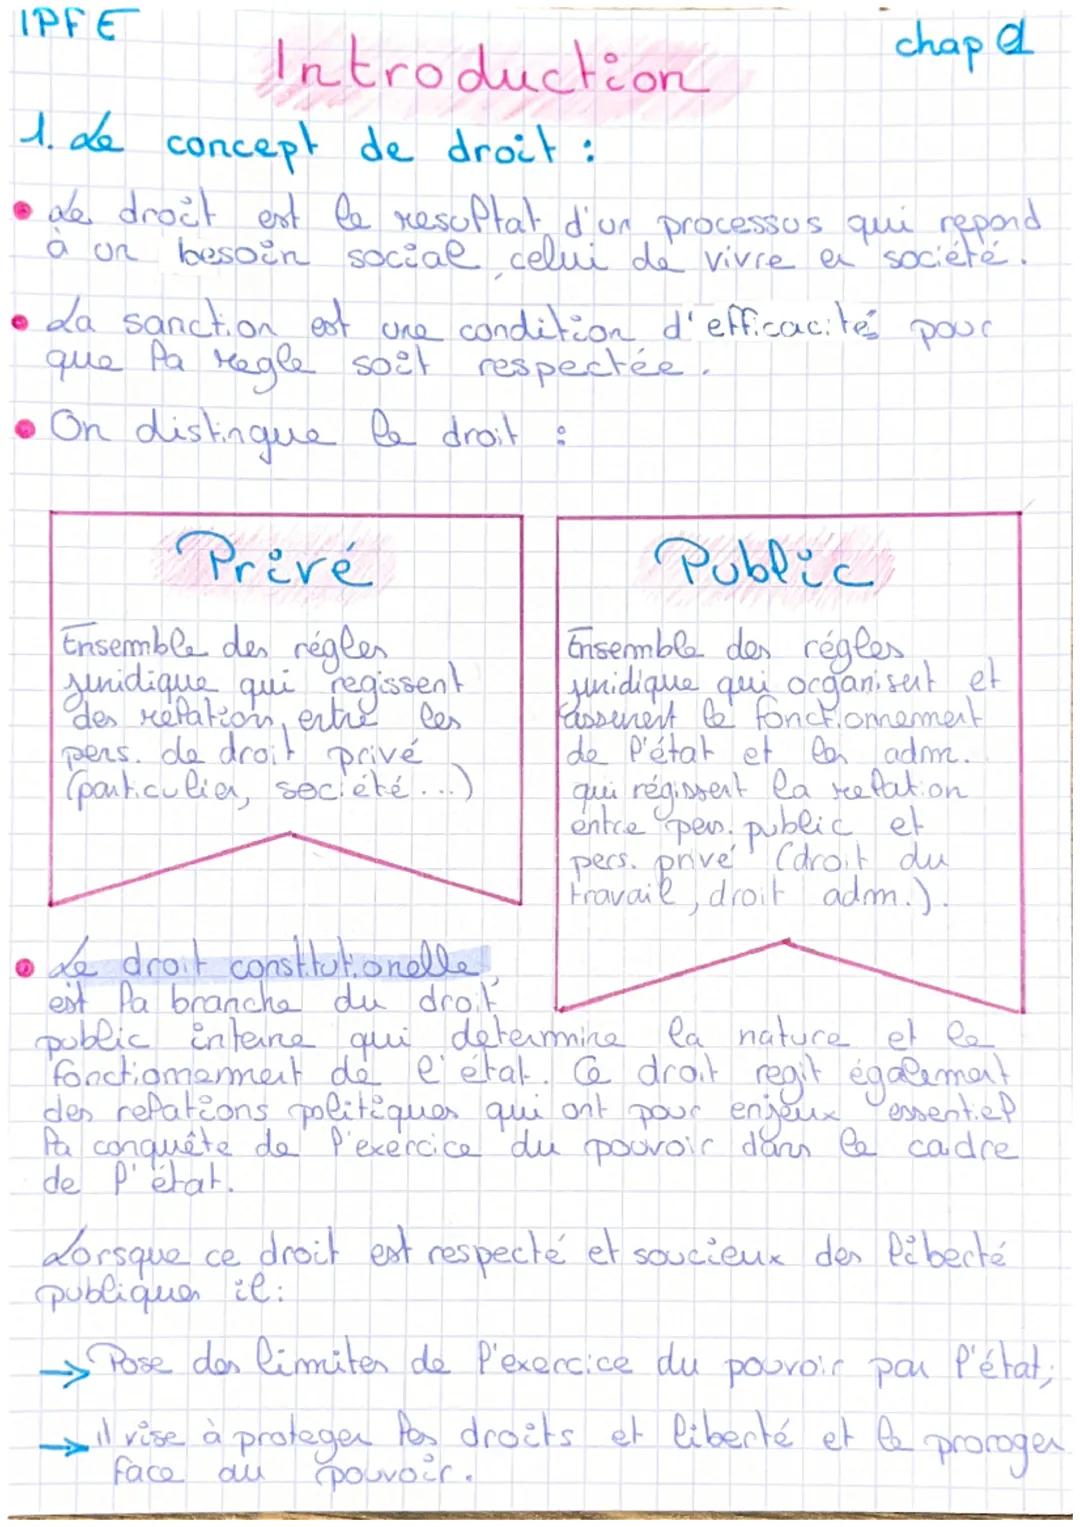 IPFE
chap 1
Introduction
1. Le concept de droit :
Le droit est le resultat d'un processus qui repond
à un besoin social, celui de vivre en société.
La sanction est une condition d'efficacités pour
que la regle soit respectée.
On distingue le droit :
Privé
Ensemble des régles
juridique qui regissent
des relation, entre les
pers. de droit privé
(particulier, société...)
Public
Ensemble des régles
juridique qui organisent et
assurent le fonctionnement
de l'état et les adm.
qui régissent la relation
entre pers. public et
pers. privé (droit du
travail, droit adm.).
Le droit consttutionelle,
est la branche du droit
public interne qui determine la nature et le
fonctionnement de l'état. Ce droit regit également
des relations politiques qui ont pour enjeux essentiel
la conquête de l'exercice du pouvoir dans le cadre
de l'état.
Lorsque ce droit est respecté et soucieux des liberté
publiques il:
→ Pose des limites de l'exercice du pouvoir par l'état;
→ il vise à proteger les droits et liberté et le proroger
face au pouvoir.